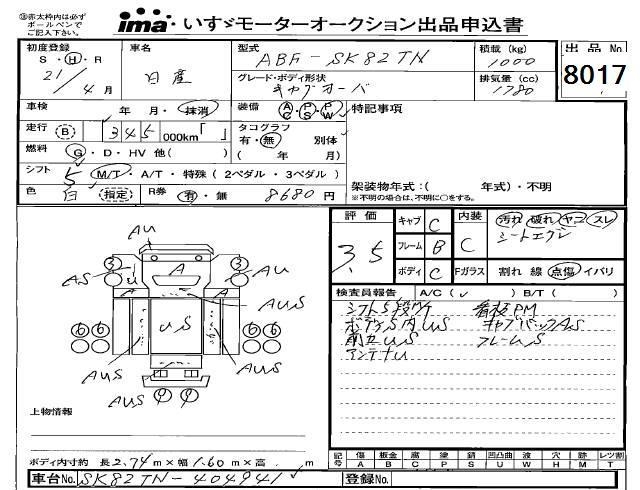 ㊟赤太枠内は必ず
ボールペンで
ご記入下さい。
ima® いすゞモーターオークション出品申込書
初度登録 S・H・R 21年 4月
車名 日産
型式 ABF-SK82TN
グレード・ボディ形状 キャブオーバ
積載 (kg) 1000
排気量 (cc) 1780
出品 No. 8017
車検 年 月・抹消
装備 AC・PS・PW
特記事項
走行 B 345 000km「 」
タコグラフ 有・無 別体
( 年 月)
燃料 G・D・HV 他( )
シフト 5 M/T・A/T・特殊 ( 2ペダル・3ペダル )
色 白 (指定) R券 有・無 8680円
架装物年式:( 年式)・不明
※不明の場合は、不明に○をする。
評価 3.5
キャブ C
フレーム B
ボディ C
内装 C
汚れ 破れ ヤニ スレ
シートエグレ
Fガラス 割れ 線 点傷 イバリ
検査員報告 A/C( ✓ ) B/T( )
シフト5段 看板PM
ボディS内US キャブバックAS
前立US フレームS
アンテナU
AU
③ ③
AS U A AU
A A
AUS
US
⑥⑥ ⑥⑥
AUS AUS
⑨ ⑨
上物情報
ボディ内寸約 長2.74m×幅1.60m×高 . m
記号 傷A 板金B 腐C 塗P 錆S 凹凸曲U 波W 穴H 跡M レツ割T
車台No. SK82TN-404941
登録No.